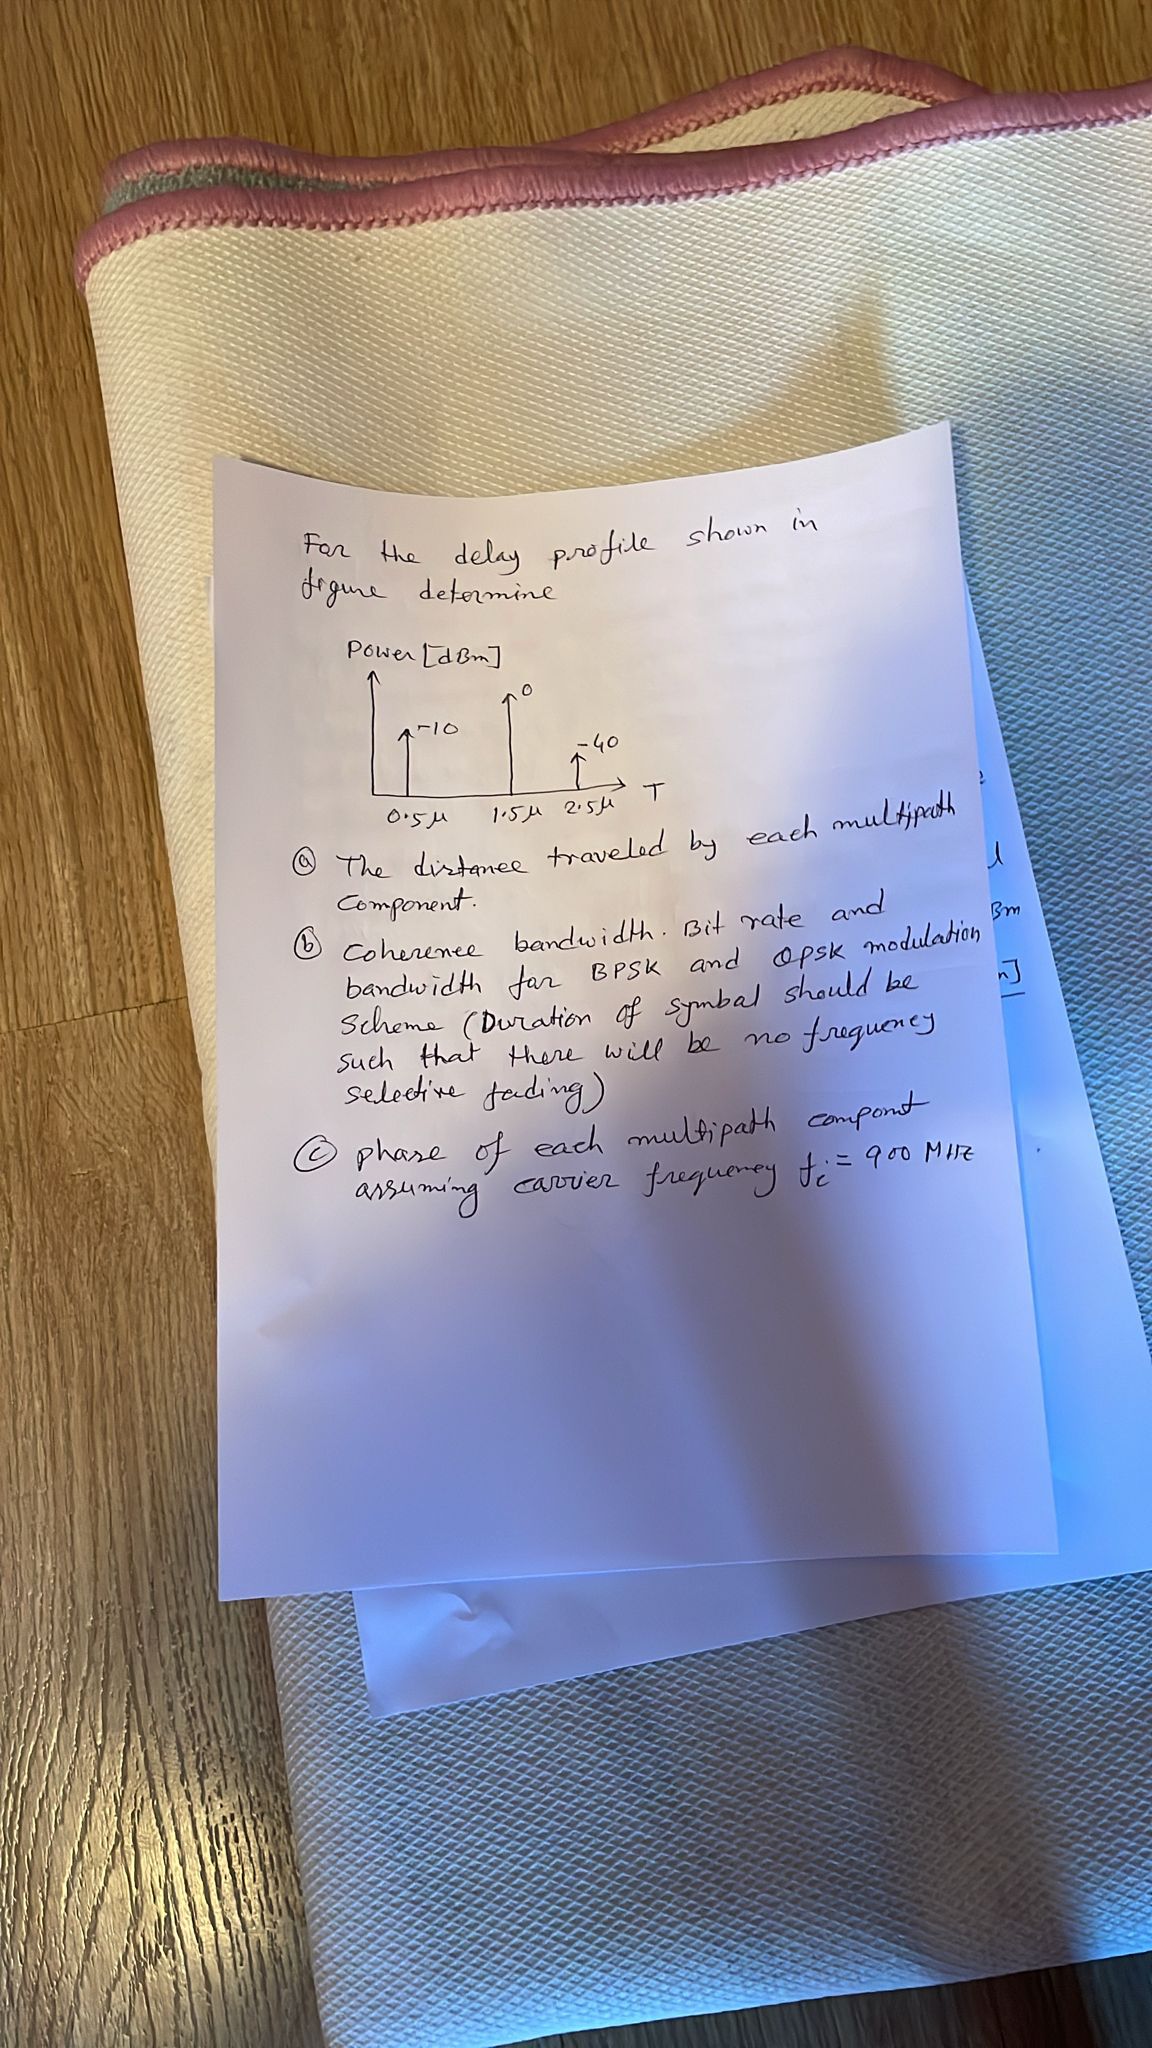 For the delay profile shown in
figure determine
Power [dBm]
-10
0
-40
0.5μ 1.5μ 2.5μ T
ⓐ The distance traveled by each multipath
component.
ⓑ Coherence bandwidth. Bit rate and
bandwidth for BPSK and QPSK modulation
Scheme (Duration of symbal should be
such that there will be no frequency
selective fading)
ⓒ phase of each multipath compont
assuming carrier frequency fc = 900 MHz
Bm